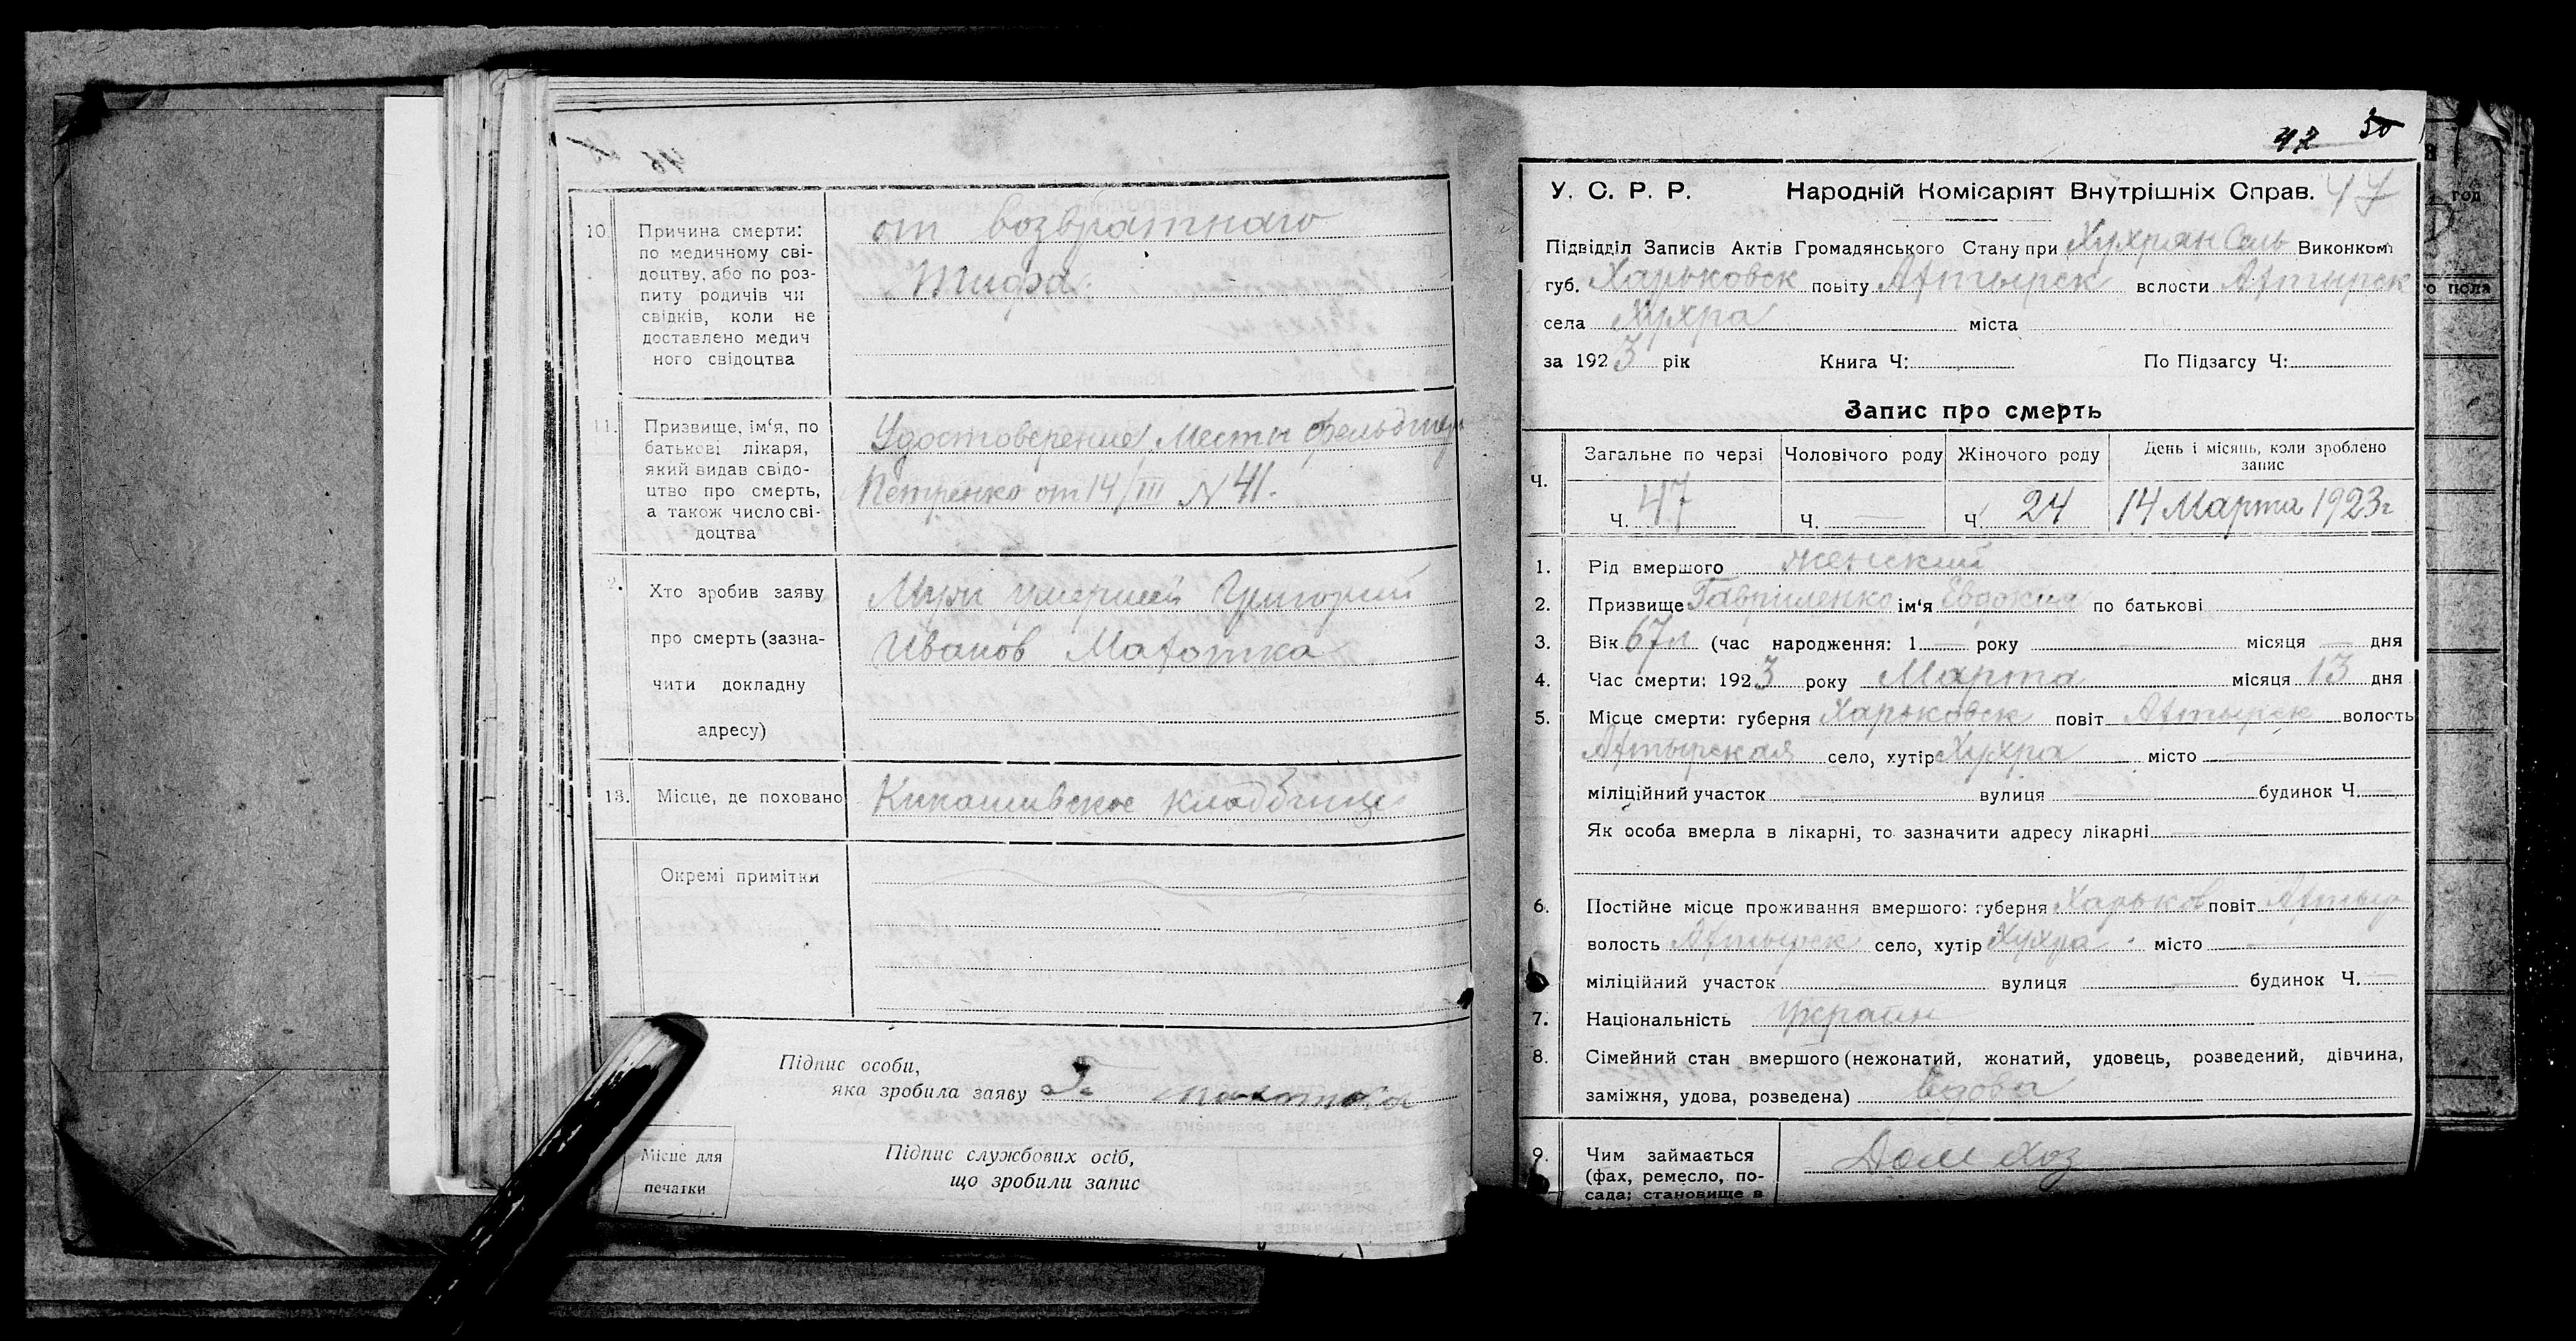 10. Причина смерти:
по медичному сві-
доцтву, або по роз-
питу родичів чи
свідків, коли не
доставлено медич
ного свідоцтва
от возвратнаго
тифа
11. Призвище, ім'я, по
батькові лікаря,
який видав свідо-
цтво про смерть,
а також число сві-
доцтва
Удостоверение Местн фельдшер
Петренко от 14/III № 41.
2. Хто зробив заяву
про смерть (зазна-
чити докладну
адресу)
Муж умершей Григорий
Иванов
13. Місце, де поховано
кладбище
Окремі примітки
Підпис особи,
яка зробила заяву
Місце для
печатки
Підпис службових осіб,
що зробили запис
42 30
У. С. Р. Р. Народній Комісаріят Внутрішніх Справ. 47
Підвідділ Записів Актів Громадянського Стану при Хухрян Сель Виконком
губ. Харьковск повіту Ахтырск вслости Ахтырск
села Хухра міста
за 1923 рік Книга Ч: По Підзагсу Ч:
Запис про смерть
Ч. Загальне по черзі Чоловічого роду Жіночого роду День і місяць, коли зроблено
запис
Ч. 47 Ч. — Ч. 24 14 Марта 1923г
1. Рід вмершого женский
2. Призвище Гавриленко ім'я Евдокия по батькові
3. Вік 67 л (час народження: 1 — року — місяця — дня
4. Час смерти: 1923 року Марта місяця 13 дня
5. Місце смерти: губерня Харьковск повіт Ахтырск волость
Ахтырская село, хутір Хухра місто —
міліційний участок — вулиця — будинок Ч. —
Як особа вмерла в лікарні, то зазначити адресу лікарні —
6. Постійне місце проживання вмершого: губерня Харьков повіт Ахтыр
волость Ахтырск село, хутір Хухра місто —
міліційний участок — вулиця — будинок Ч. —
7. Національність Украин
8. Сімейний стан вмершого (нежонатий, жонатий, удовець, розведений, дівчина,
заміжня, удова, розведена) вдова
9. Чим займається
(фах, ремесло, по-
сада; становище в
Дом Хоз